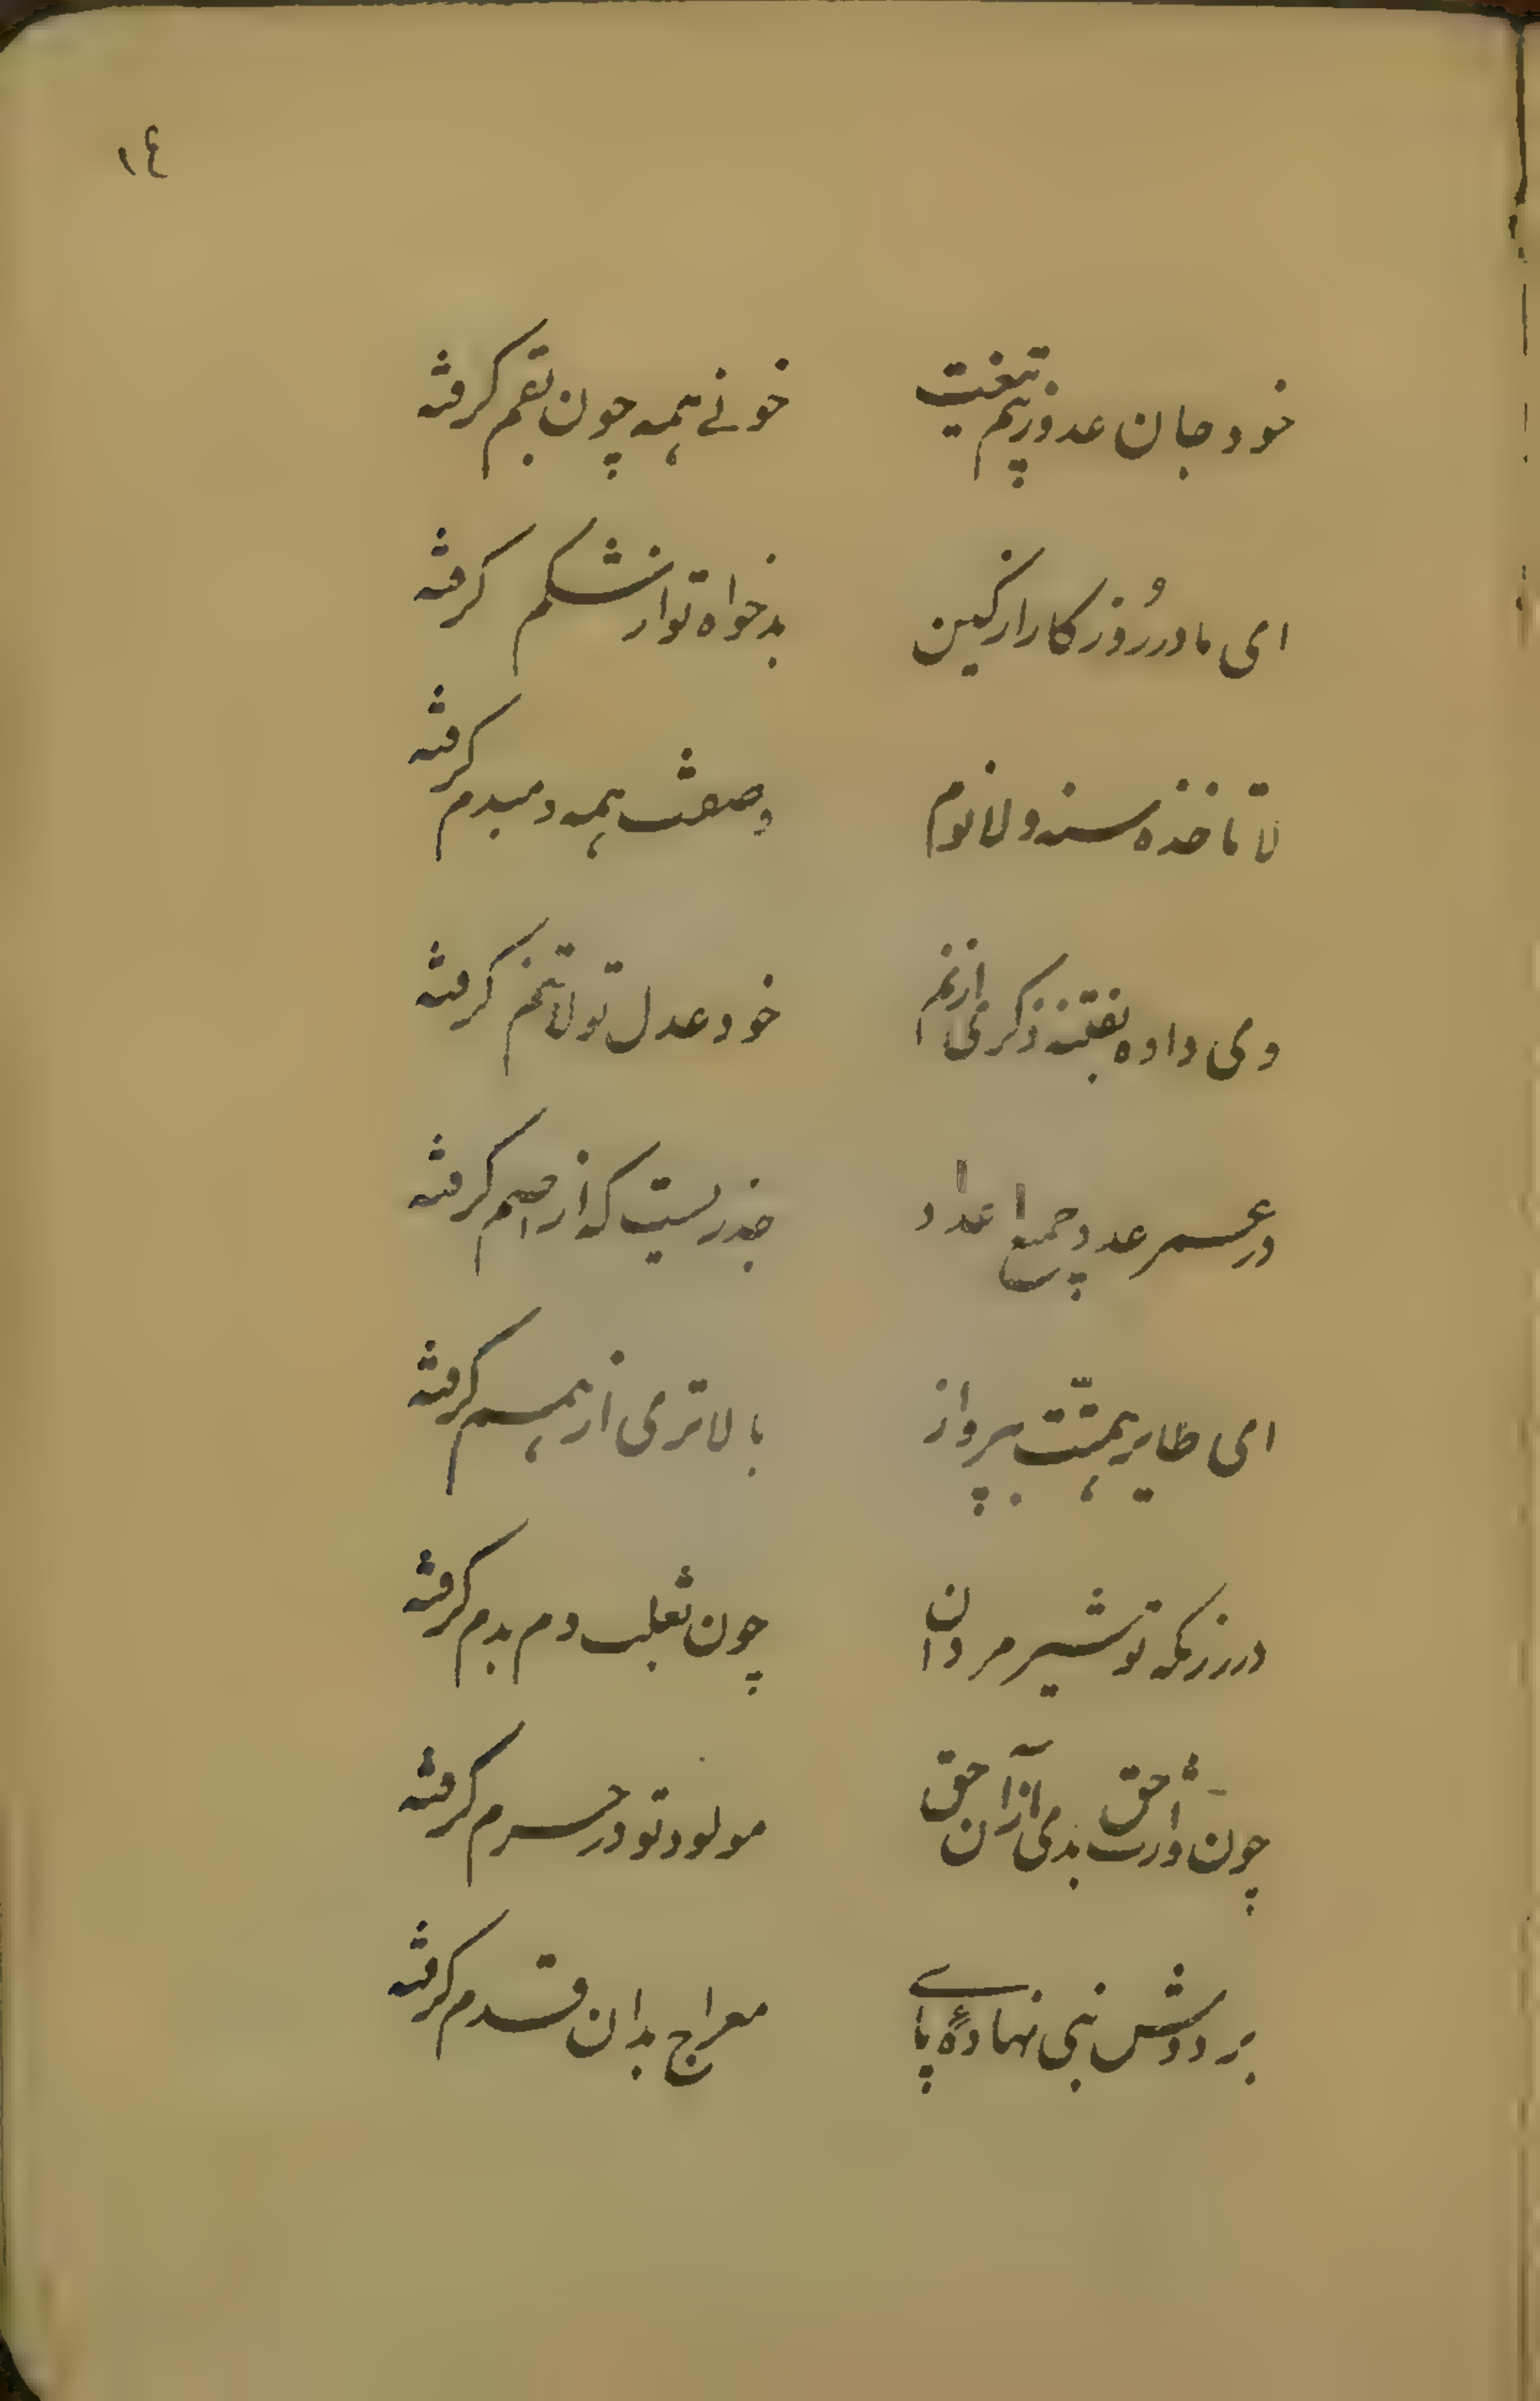 ١٤
خود جان عدو ز بیم تیغت خونے همه چون بقم کرفته
ای مادر رُوزکار از کین بدخواه تو از شکم کرفته
لا تاخذه سنه و لا نوم وصفت همه دمبدم کرفته
وی داده بفتنه ذکری از نم خود عدل تو لا تخم کرفته
در عسر عدو چو جمیع اعداد جذریست که از اصم کرفته
ای طایر همّتت بپرواز بالاتری از همم کرفته
در رزمکه تو شیر مردان چون ثعلب دم بدم کرفته
چون وارث حق بدی از آن حق مولود تو در حرم کرفته
بر دوش نبی نهادهٔ پاے معراج بدان قدم کرفته